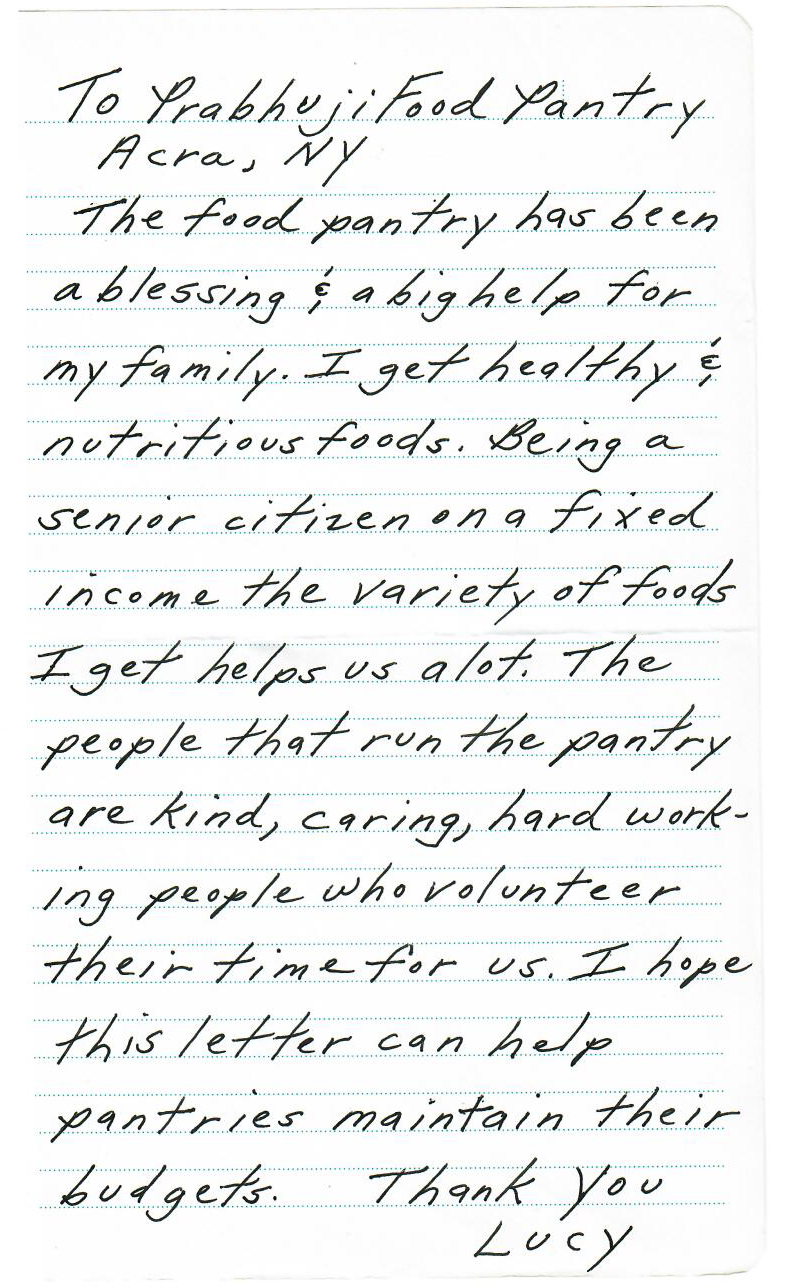 To Prabhuji Food Pantry
Acra, NY
The food pantry has been
a blessing & a big help for
my family. I get healthy &
nutritious foods. Being a
senior citizen on a fixed
income the variety of foods
I get helps us alot. The
people that run the pantry
are kind, caring, hard work-
ing people who volunteer
their time for us. I hope
this letter can help
pantries maintain their
budgets. Thank You
Lucy